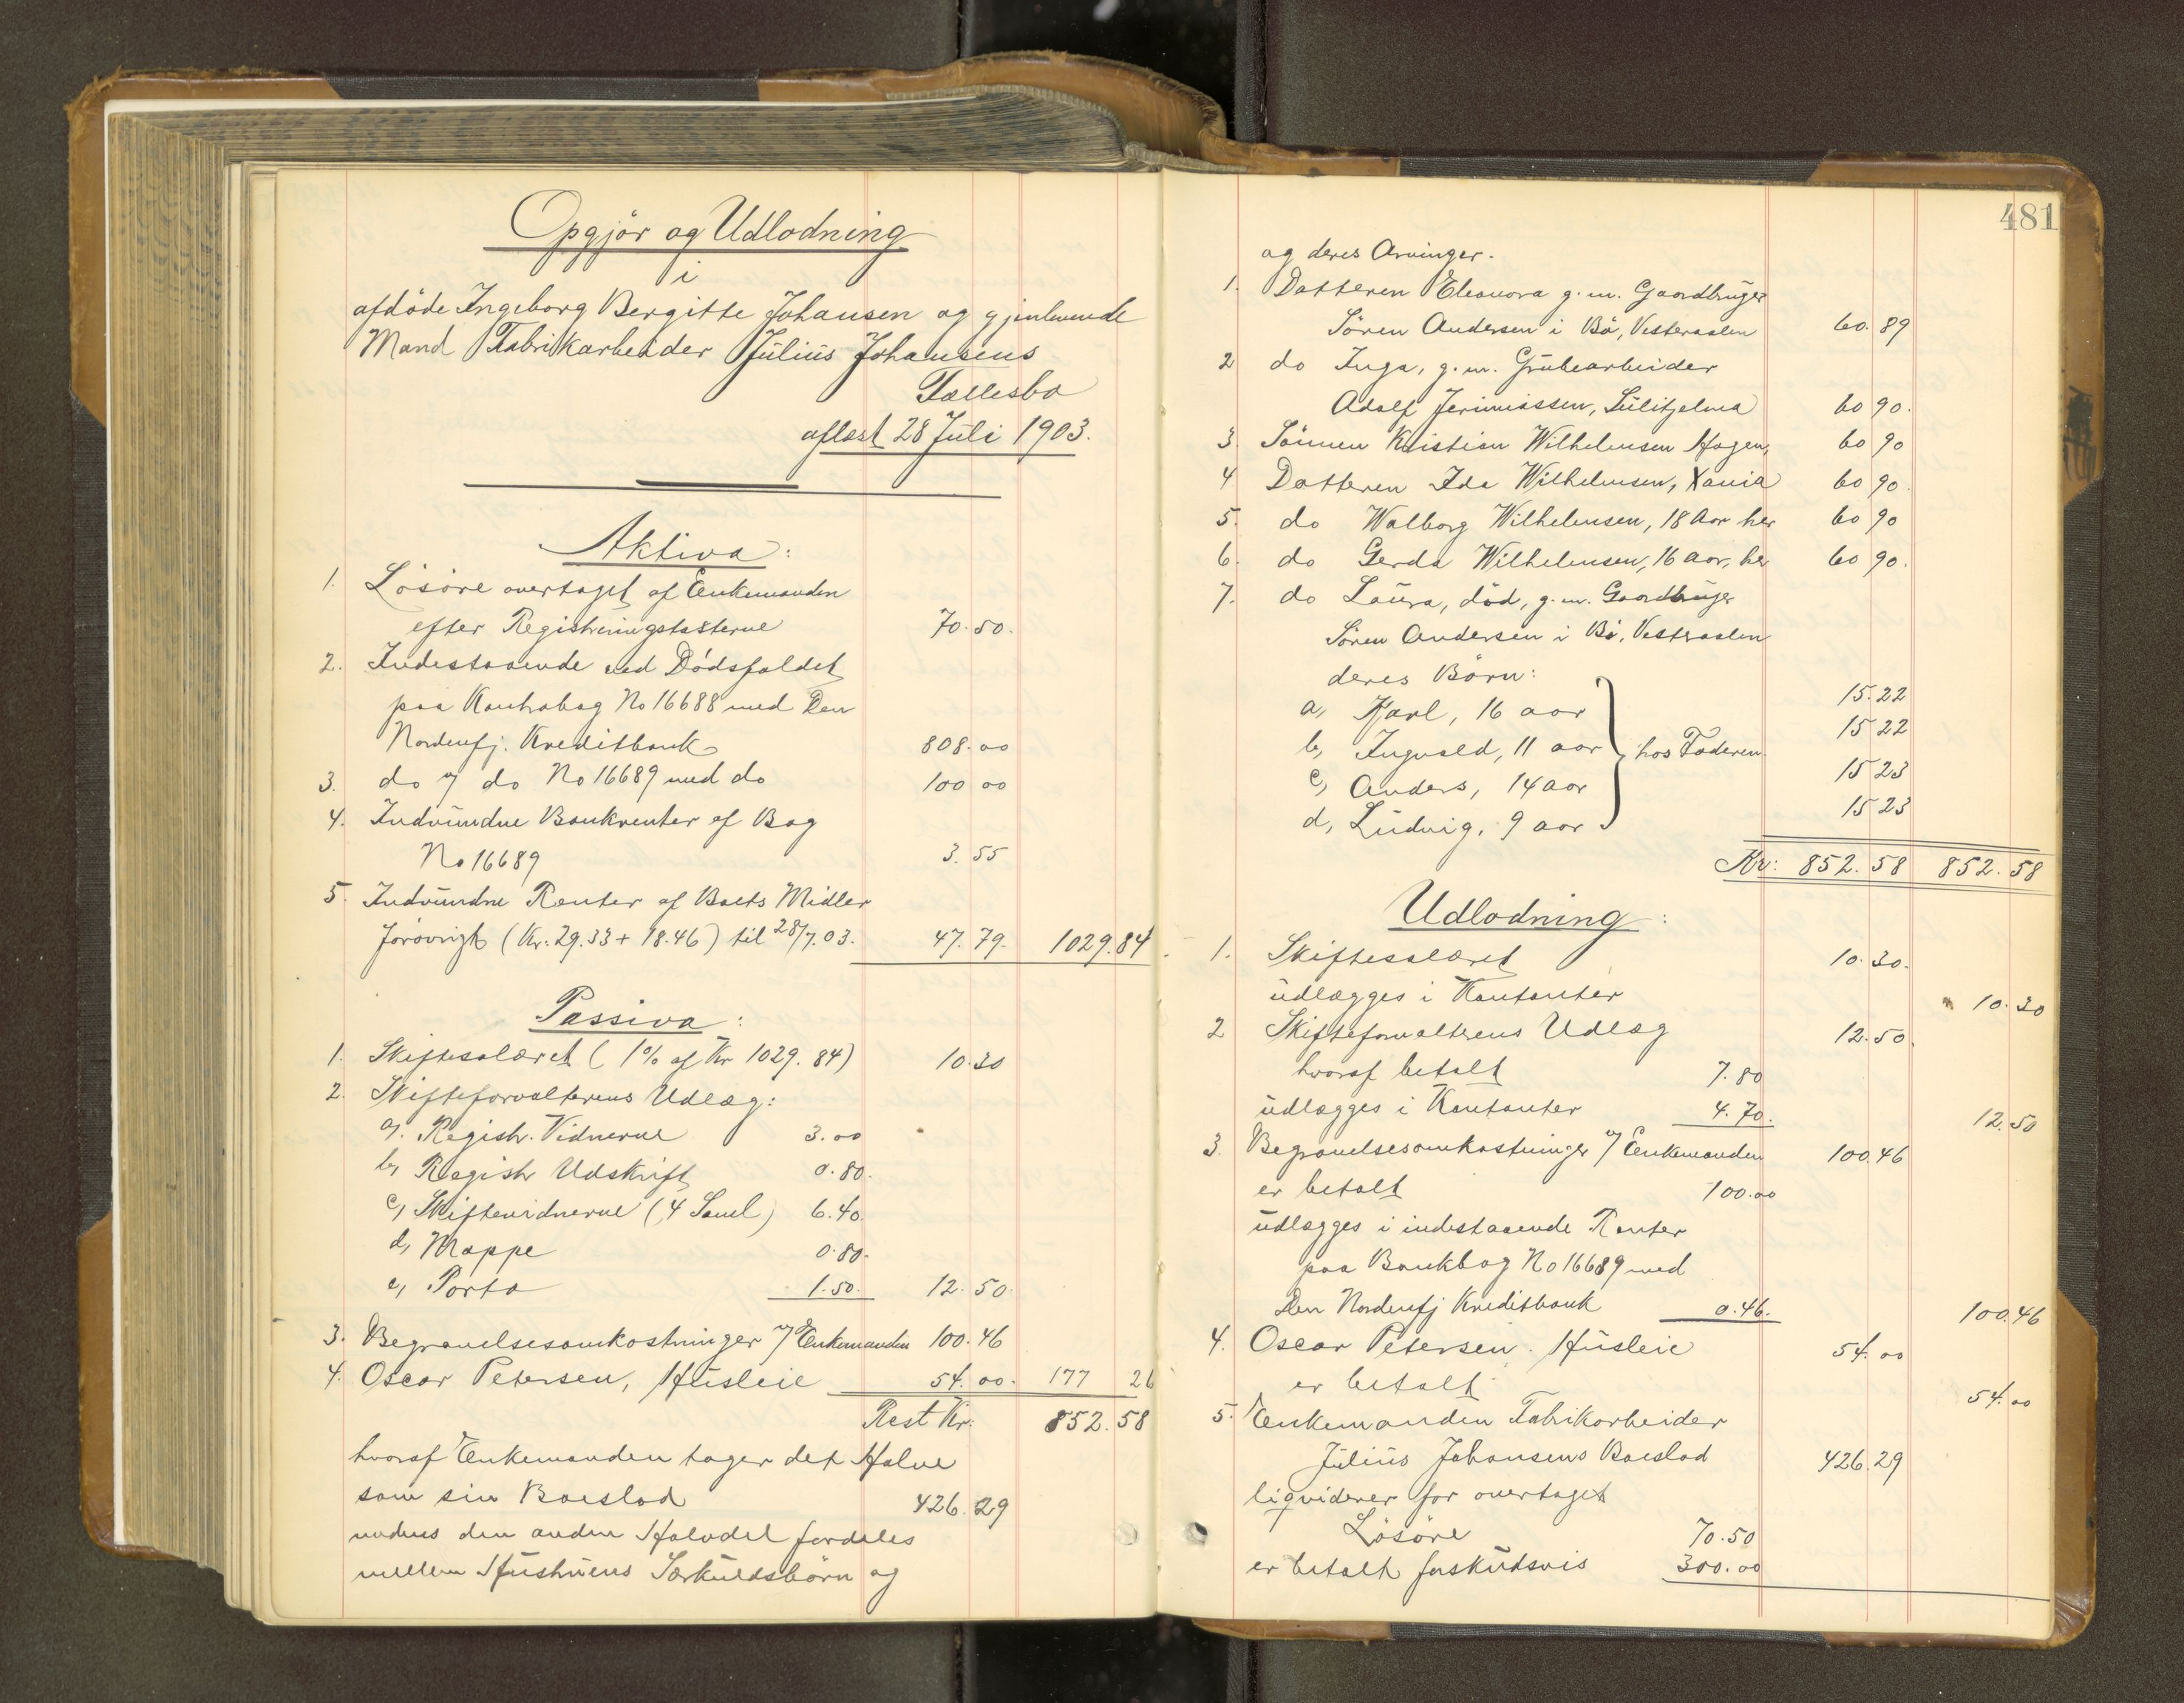 Opgjör og Udlodning
i
afdöde Ingeborg Bergitte Johansen og gjenlevende
Mand Fabrikarbeider Julius Johansens
Fællesbo
aflæst 28 Juli 1903.
Aktiva:
1. Lösöre overtaget af Enkemanden
efter Registreringstaxterne 70.50.
2. Indestaaende ved Dödsfaldet
paa Kontrabog No 16688 med Den
Nordenfj. Kreditbank 808.00
3. do af do No 16689 med do 100 00
4. Indvundne Bankrenter af Bog
No 16689 3.55
5. Indvundne Renter af Boets Midler
forövrigt (Kr: 29.33 + 18.46) til 28/7.03. 47.79. 1029.84
Passiva:
1. Skiftesalæret (1% af Kr 1029.84) 10.30
2. Skifteforvalterens Udlæg:
a. Registr. Vidnerne 3.00
b, Registr Udskrift 0.80.
c, Skiftevidnerne (4 Saml) 6.40.
d, Mappe 0.80.
e, Porto 1.50. 12.50.
3. Begravelsesomkostninger af Enkemanden 100.46
4. Oscar Petersen, Husleie 54.00. 177 26
Rest Kr: 852.58
hvoraf Enkemanden tager det Halve
som sin Boeslod 426.29
medens den anden Halvdel fordeles
mellem Hustruens Særkuldsbörn og
481
og deres Arvinger.
1. Datteren Eleonora g.m. Gaardbruger
Sören Andersen i Bö, Vesteraalen 60.89
2 do Inga, g.m. Grubearbeider
Adolf Jerimiassen, Sulitjelma 60 90.
3 Sönnen Kristian Wilhelmsen Hagen, 60 90
4 Datteren Ida Wilhelmsen, Xania 60 90.
5. do Walborg Wilhelmsen, 18 Aar her 60 90
6. do Gerda Wilhelmsen, 16 aar, her 60 90.
7. do Laura, död, g.m. Gaardbruger
Sören Andersen i Bö, Vestraalen
deres Börn:
a, Karl, 16 aar 15.22
b, Ingvald, 11 aar hos Faderen. 15 22
c, Anders, 14 aar 15 23
d, Ludvig, 9 aar 15 23
Kr: 852.58 852.58
Udlodning:
1. Skiftesalæret 10.30.
udlægges i Kontanter 10.30
2 Skifteforvalterens Udlæg 12.50.
hvoraf betalt 7.80
udlægges i Kontanter 4.70. 12.50
3. Begravelsesomkostninger af Enkemanden 100.46
er betalt 100.00
udlægges i indestaaende Renter
paa Bankbog No 16689 med
Den Nordenfj Kreditbank 0.46. 100.46
4. Oscar Petersen. Husleie 54.00
er betalt 54.00
5. Enkemanden Fabrikarbeider
Julius Johansens Boeslod 426.29
liqviderer for overtaget
Lösöre 70.50
er betalt forskudsvis 300.00